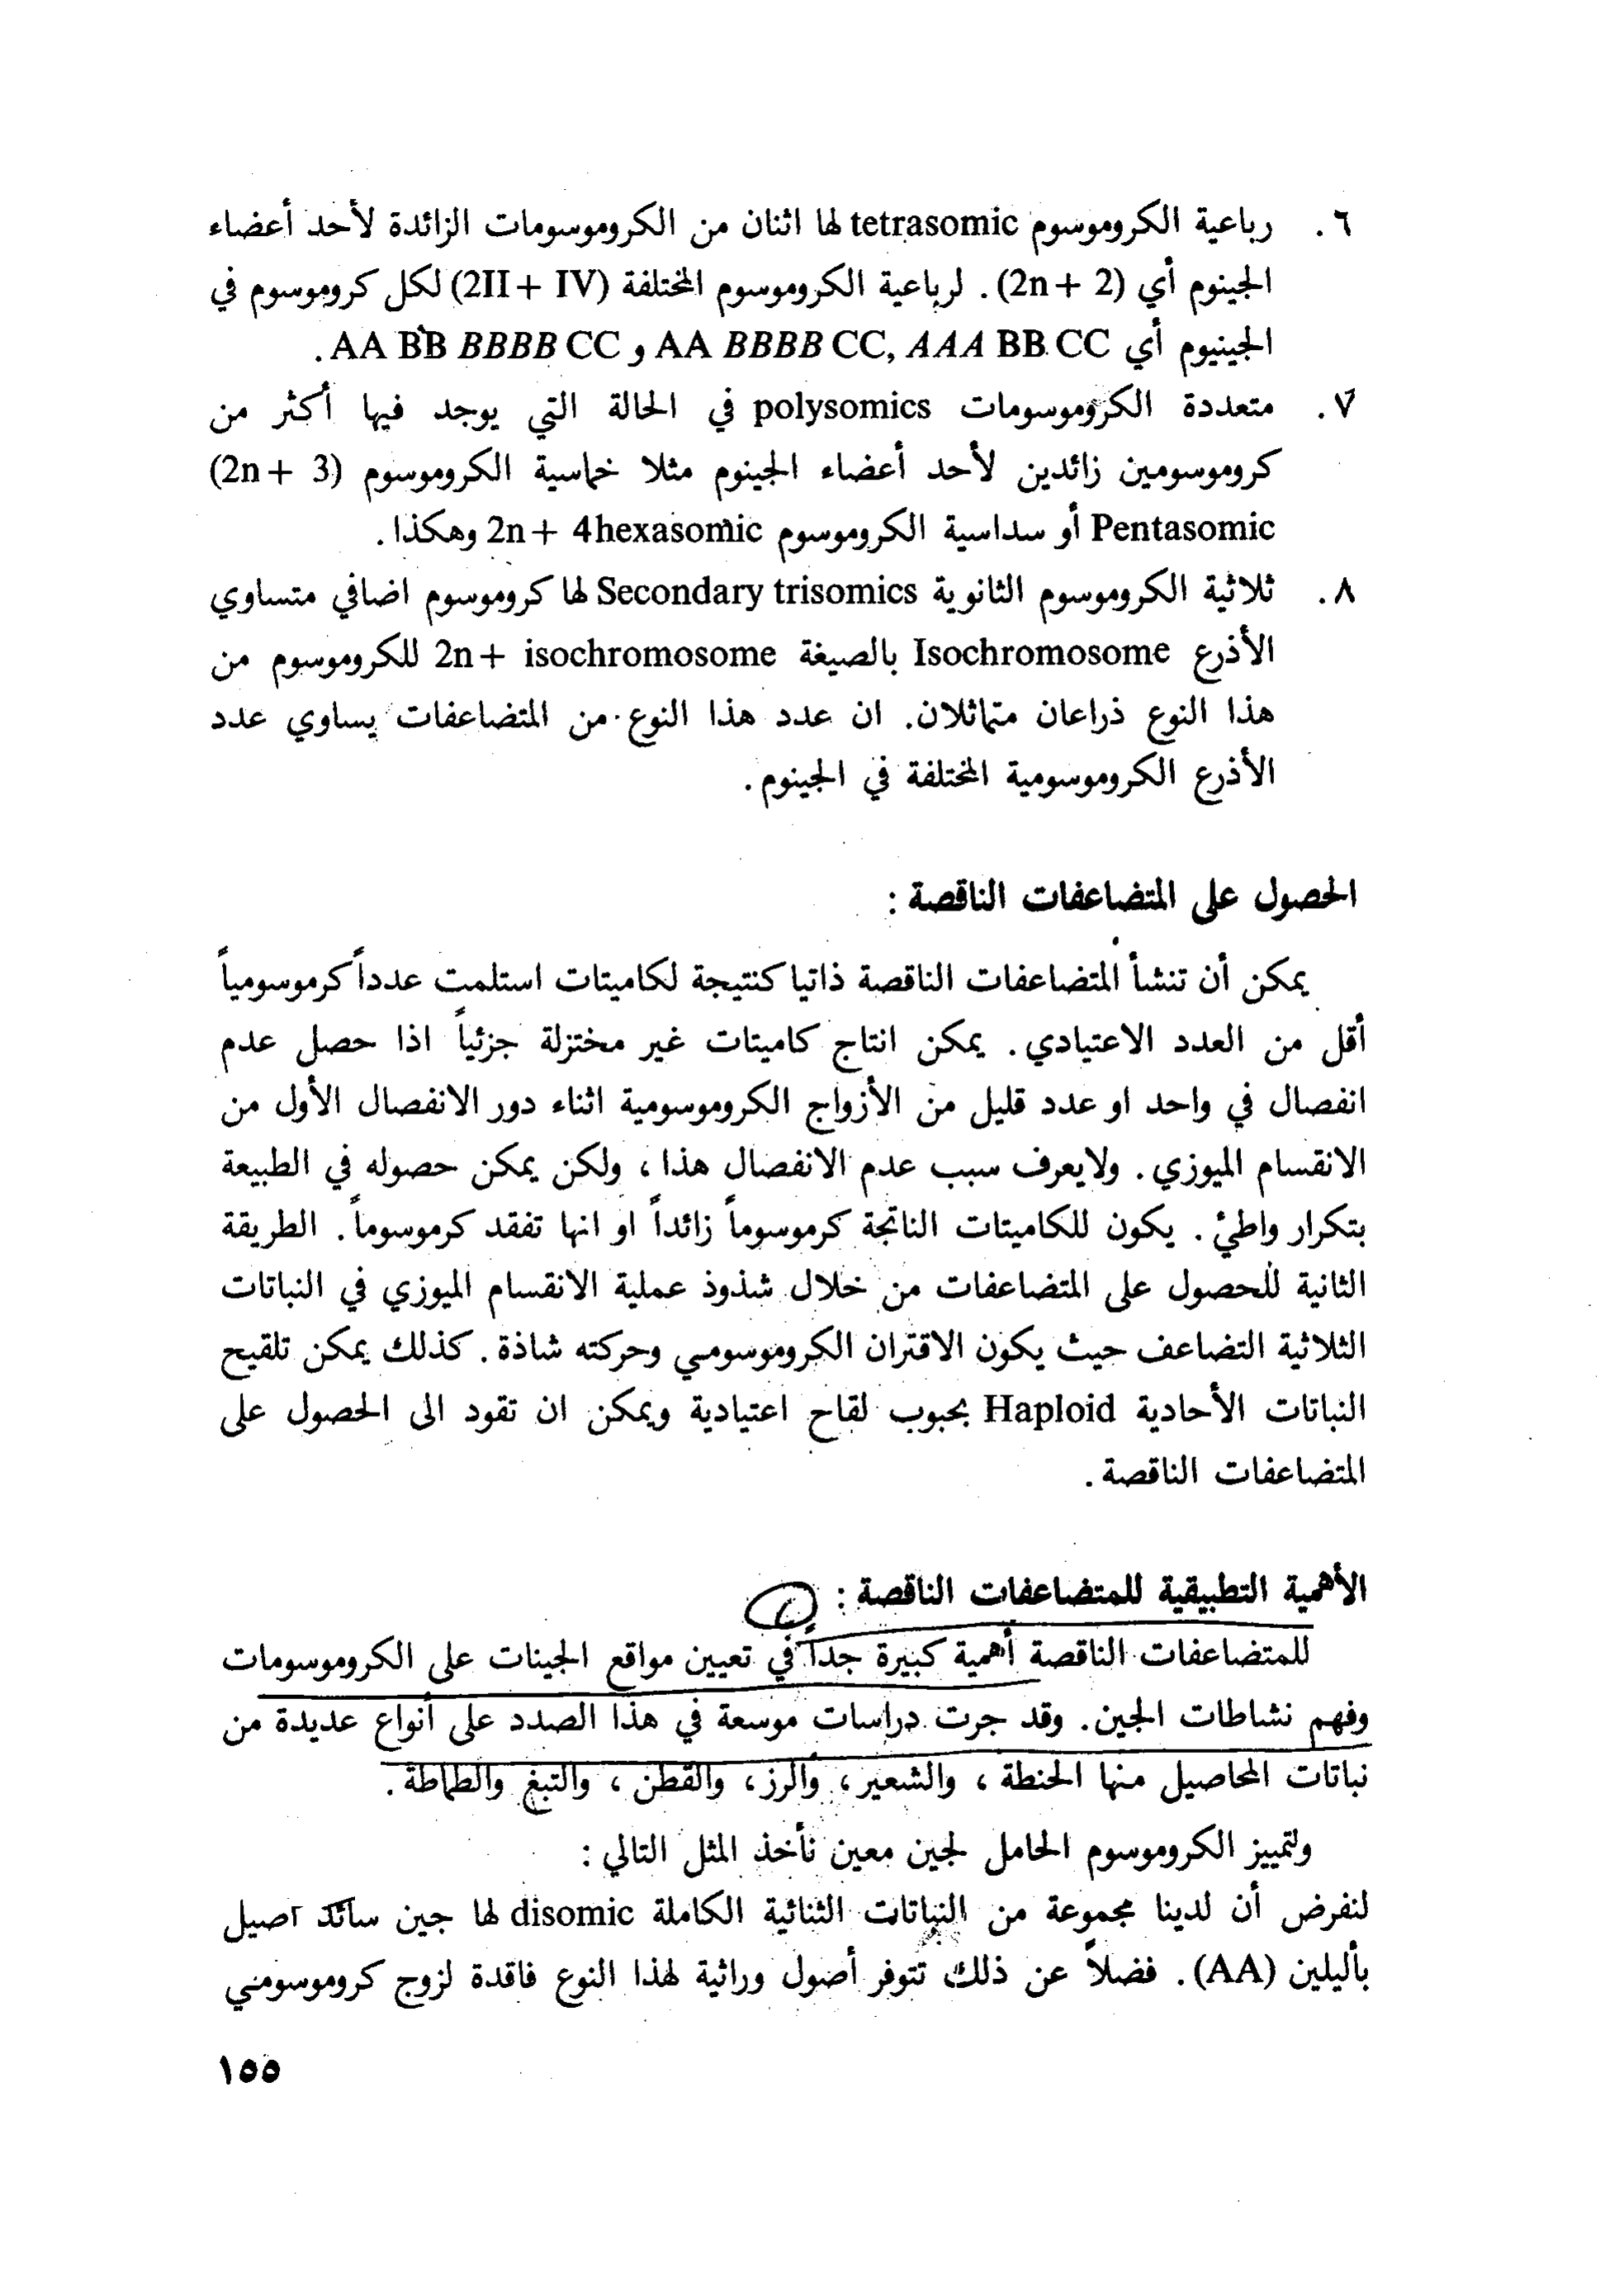 ٦. رباعية الكروموسوم tetrasomic لها اثنان من الكروموسومات الزائدة لأحد أعضاء
الجينوم أي (2n + 2). لرباعية الكروموسوم المختلفة (2II + IV) لكل كروموسوم في
الجينيوم أي AA BBBB CC, AAA BB CC و AA BB BBBB CC.
٧. متعددة الكروموسومات polysomics في الحالة التي يوجد فيها أكثر من
كروموسومين زائدين لأحد أعضاء الجينوم مثلا خماسية الكروموسوم (2n + 3)
Pentasomic أو سداسية الكروموسوم 2n + 4hexasomic وهكذا.
٨. ثلاثية الكروموسوم الثانوية Secondary trisomics لها كروموسوم اضافي متساوي
الأذرع Isochromosome بالصيغة 2n + isochromosome للكروموسوم من
هذا النوع ذراعان متماثلان. ان عدد هذا النوع من المتضاعفات يساوي عدد
الأذرع الكروموسومية المختلفة في الجينوم.
الحصول على المتضاعفات الناقصة :
يمكن أن تنشأ المتضاعفات الناقصة ذاتيا كنتيجة لكاميتات استلمت عدداً كرموسومياً
أقل من العدد الاعتيادي. يمكن انتاج كاميتات غير مختزلة جزئياً اذا حصل عدم
انفصال في واحد او عدد قليل من الأزواج الكروموسومية اثناء دور الانفصال الأول من
الانقسام الميوزي. ولايعرف سبب عدم الانفصال هذا، ولكن يمكن حصوله في الطبيعة
بتكرار واطئ. يكون للكاميتات الناتجة كرموسوماً زائداً او انها تفقد كرموسوماً. الطريقة
الثانية للحصول على المتضاعفات من خلال شذوذ عملية الانقسام الميوزي في النباتات
الثلاثية التضاعف حيث يكون الاقتران الكروموسومي وحركته شاذة. كذلك يمكن تلقيح
النباتات الأحادية Haploid بحبوب لقاح اعتيادية ويمكن ان تقود الى الحصول على
المتضاعفات الناقصة.
الأهمية التطبيقية للمتضاعفات الناقصة :
للمتضاعفات الناقصة أهمية كبيرة جداً في تعيين مواقع الجينات على الكروموسومات
وفهم نشاطات الجين. وقد جرت دراسات موسعة في هذا الصدد على أنواع عديدة من
نباتات المحاصيل منها الحنطة، والشعير، والرز، والقطن، والتبغ والطماطة.
ولتمييز الكروموسوم الحامل لجين معين نأخذ المثل التالي :
لنفرض أن لدينا مجموعة من النباتات الثنائية الكاملة disomic لها جين سائد اصيل
بأليلين (AA). فضلاً عن ذلك تتوفر أصول وراثية لهذا النوع فاقدة لزوج كروموسومي
١٥٥